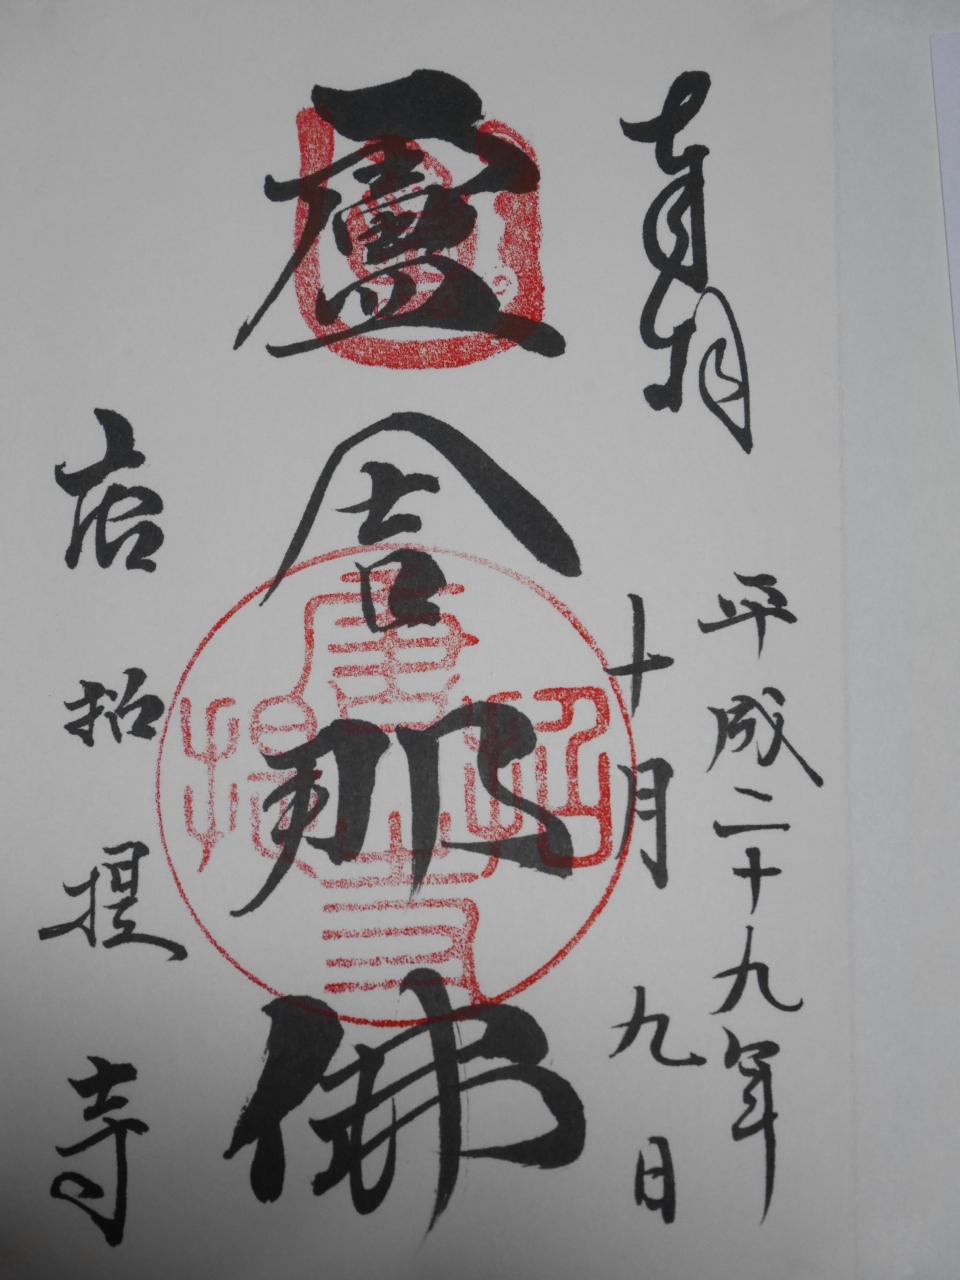 奉拝
平成二十九年
十月九日
盧舎那佛
唐招提寺
唐招提寺